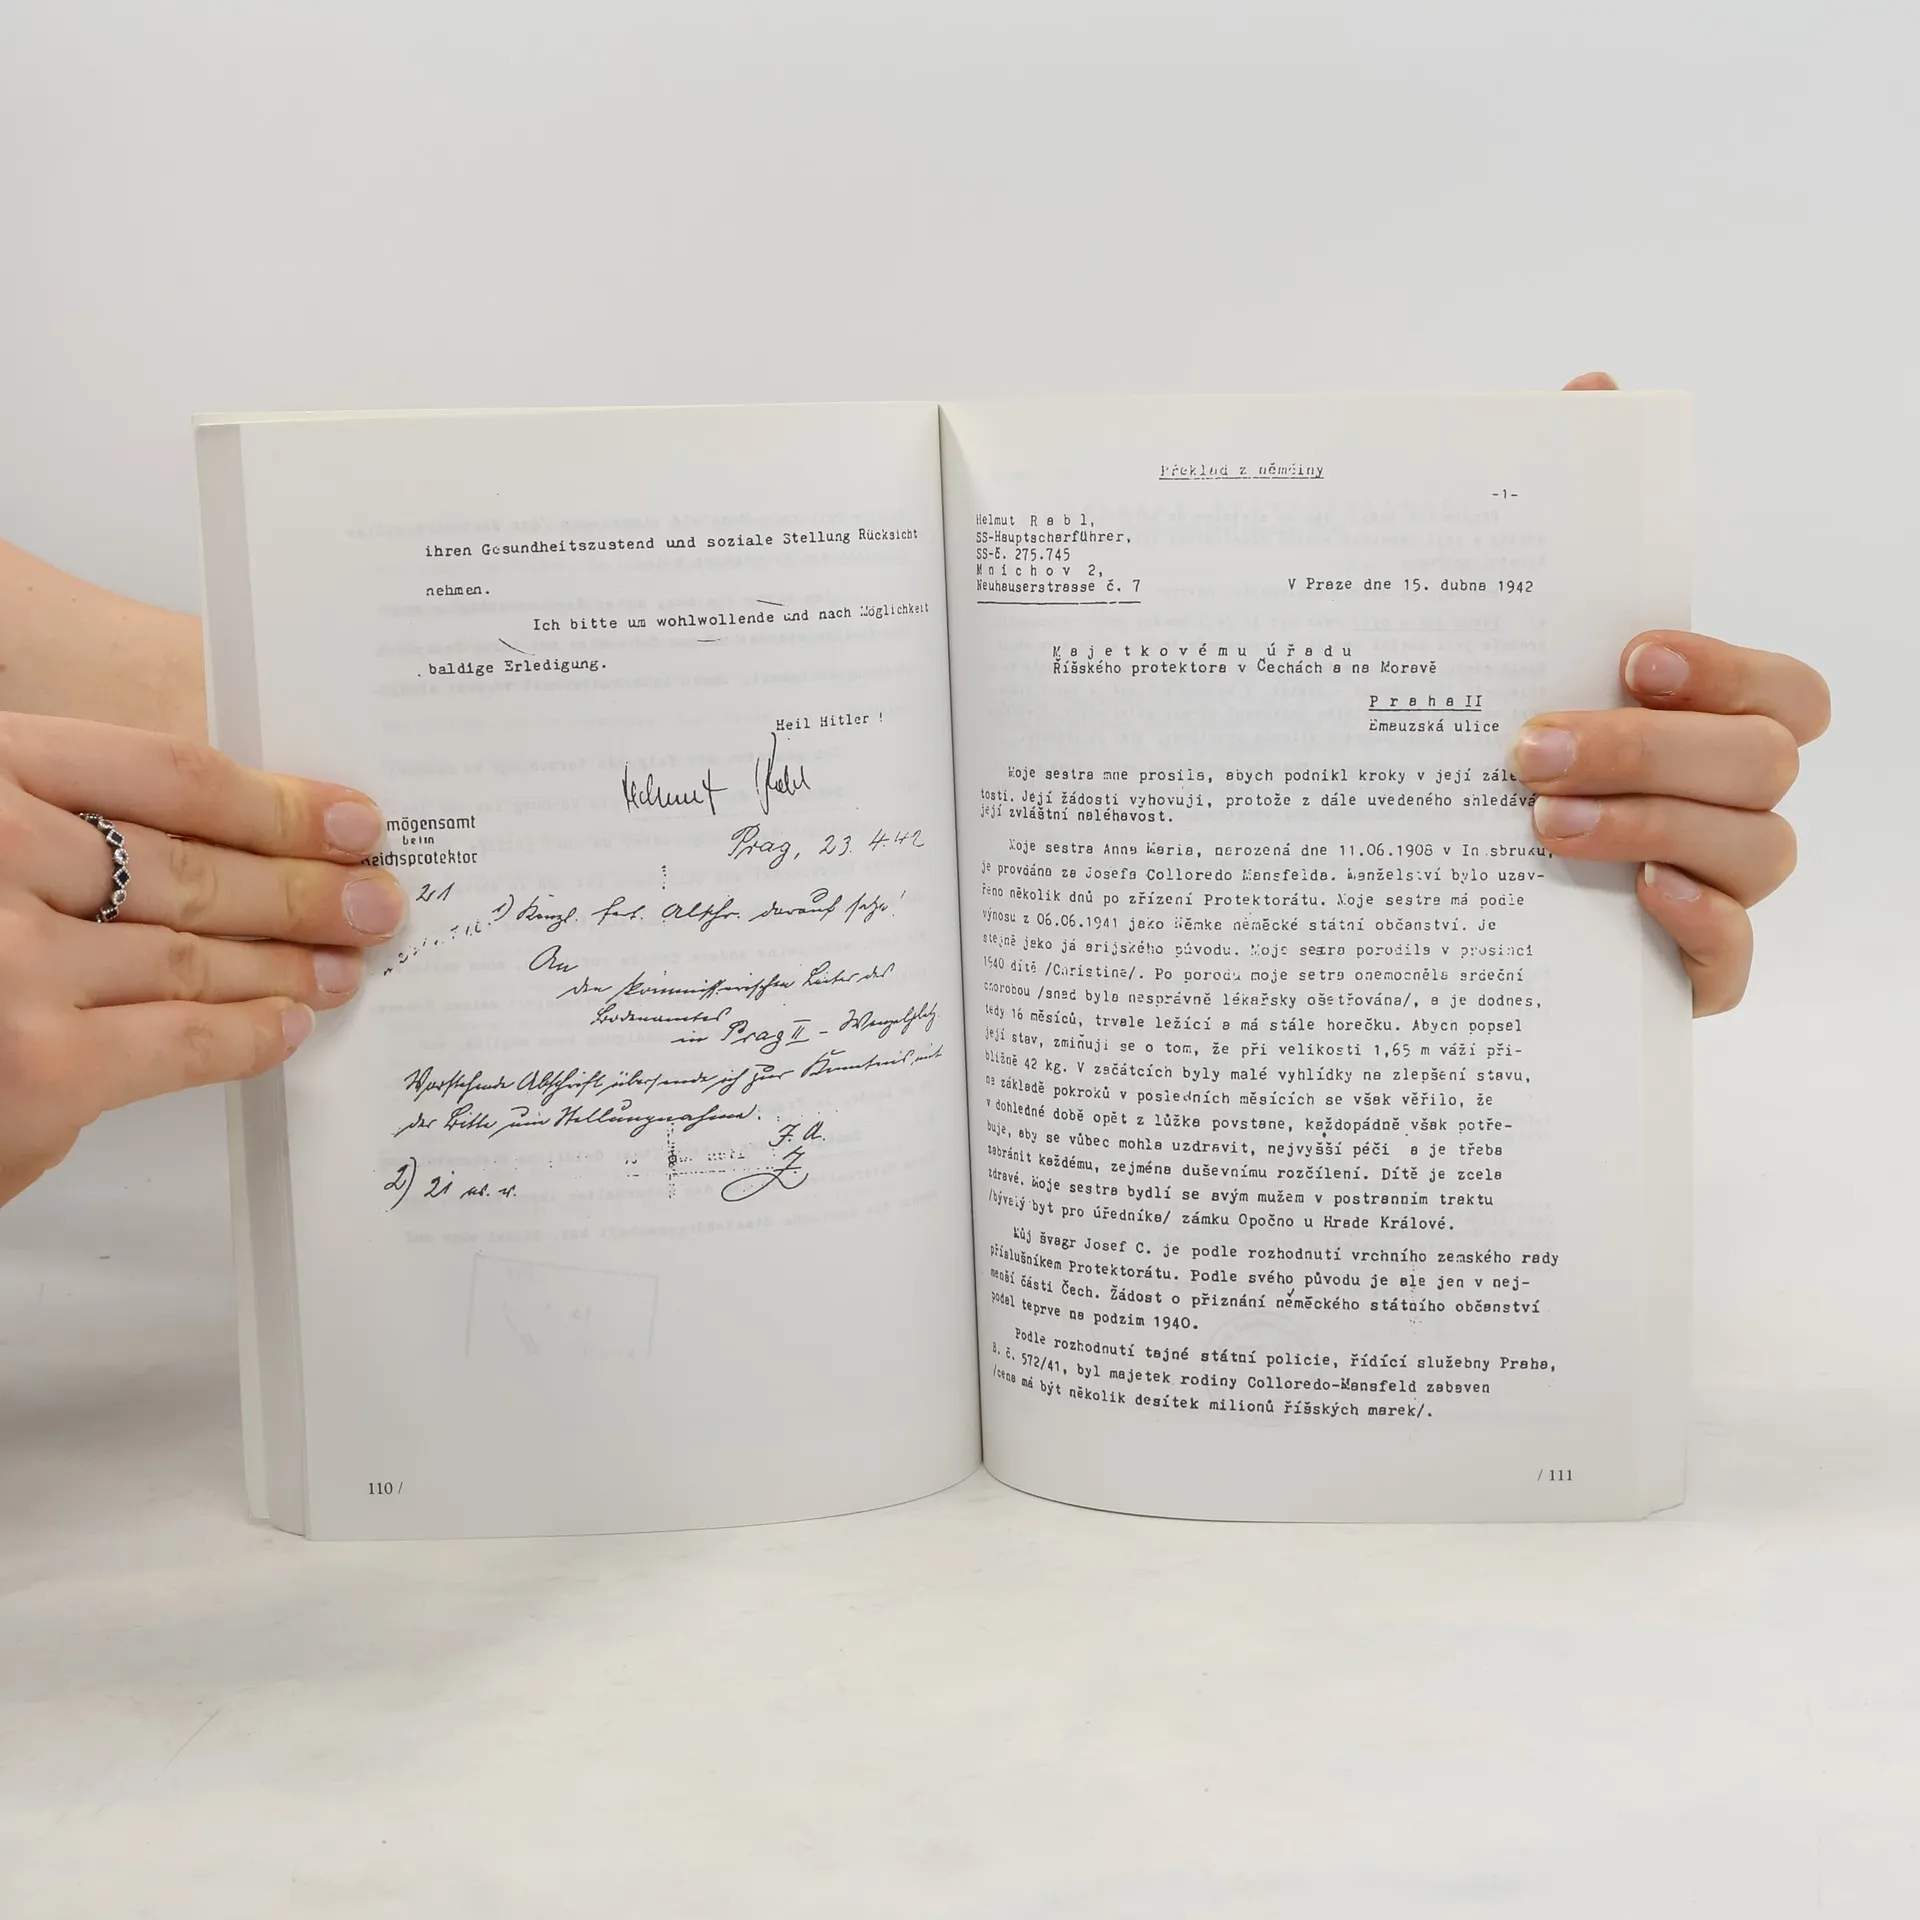 ihren Gesundheitszustend und soziale Stellung Rücksicht
nehmen.
Ich bitte um wohlwollende und nach Möglichkeit
baldige Erledigung.
Heil Hitler !
Helmut Rabl
mögensamt
beim
Reichsprotektor
Prag, 23. 4. 42
1) Kanzl. fert. Abschr. darauf setze!
An
den kommissarischen Leiter des
Bodenamtes
in Prag II - Wenzelsplatz.
Vorstehende Abschrift übersende ich zur Kenntnis mit
der Bitte um Stellungnahme.
J. A.
2) 21
110 /
Překlad z němčiny
-1-
Helmut R a b l,
SS-Hauptscharführer,
SS-č. 275.745
M n i c h o v 2,
Neuhauserstrasse č. 7
V Praze dne 15. dubna 1942
M a j e t k o v é m u ú ř a d u
Říšského protektora v Čechách a na Moravě
P r a h a II
Emauzská ulice
Moje sestra mne prosila, abych podnikl kroky v její zále
tosti. Její žádosti vyhovuji, protože z dále uvedeného shledává
její zvláštní naléhavost.
Moje sestra Anna Maria, narozená dne 11.06.1908 v In sbruku,
je provdána za Josefa Colloredo Mansfelda. Manželství bylo uzav-
řeno několik dnů po zřízení Protektorátu. Moje sestra má podle
výnosu z 06.06.1941 jako Němka německé státní občanství. Je
stejně jako já arijského původu. Moje sestra porodila v prosinci
1940 dítě /Christine/. Po porodu moje setra onemocněla srdeční
chorobou /snad byla nesprávně lékařsky ošetřována/, a je dodnes,
tedy 16 měsíců, trvale ležící a má stále horečku. Abych popsel
její stav, zmiňuji se o tom, že při velikosti 1,65 m váží při-
bližně 42 kg. V začátcích byly malé vyhlídky na zlepšení stavu,
na základě pokroků v posledních měsících se však věřilo, že
v dohledné době opět z lůžka povstane, každopádně však potře-
buje, aby se vůbec mohla uzdravit, nejvyšší péči a je třeba
zabránit každému, zejména duševnímu rozčílení. Dítě je zcela
zdravé. Moje sestra bydlí se svým mužem v postranním traktu
/bývalý byt pro úředníka/ zámku Opočno u Hrade Králové.
Můj švagr Josef C. je podle rozhodnutí vrchního zemského rady
příslušníkem Protektorátu. Podle svého původu je ale jen v nej-
menší části Čech. Žádost o přiznání německého státního občanství
podal teprve na podzim 1940.
Podle rozhodnutí tajné státní policie, řídící služebny Praha,
B. č. 572/41, byl majetek rodiny Colloredo-Mansfeld zabaven
/cena má být několik desítek milionů říšských marek/.
/ 111